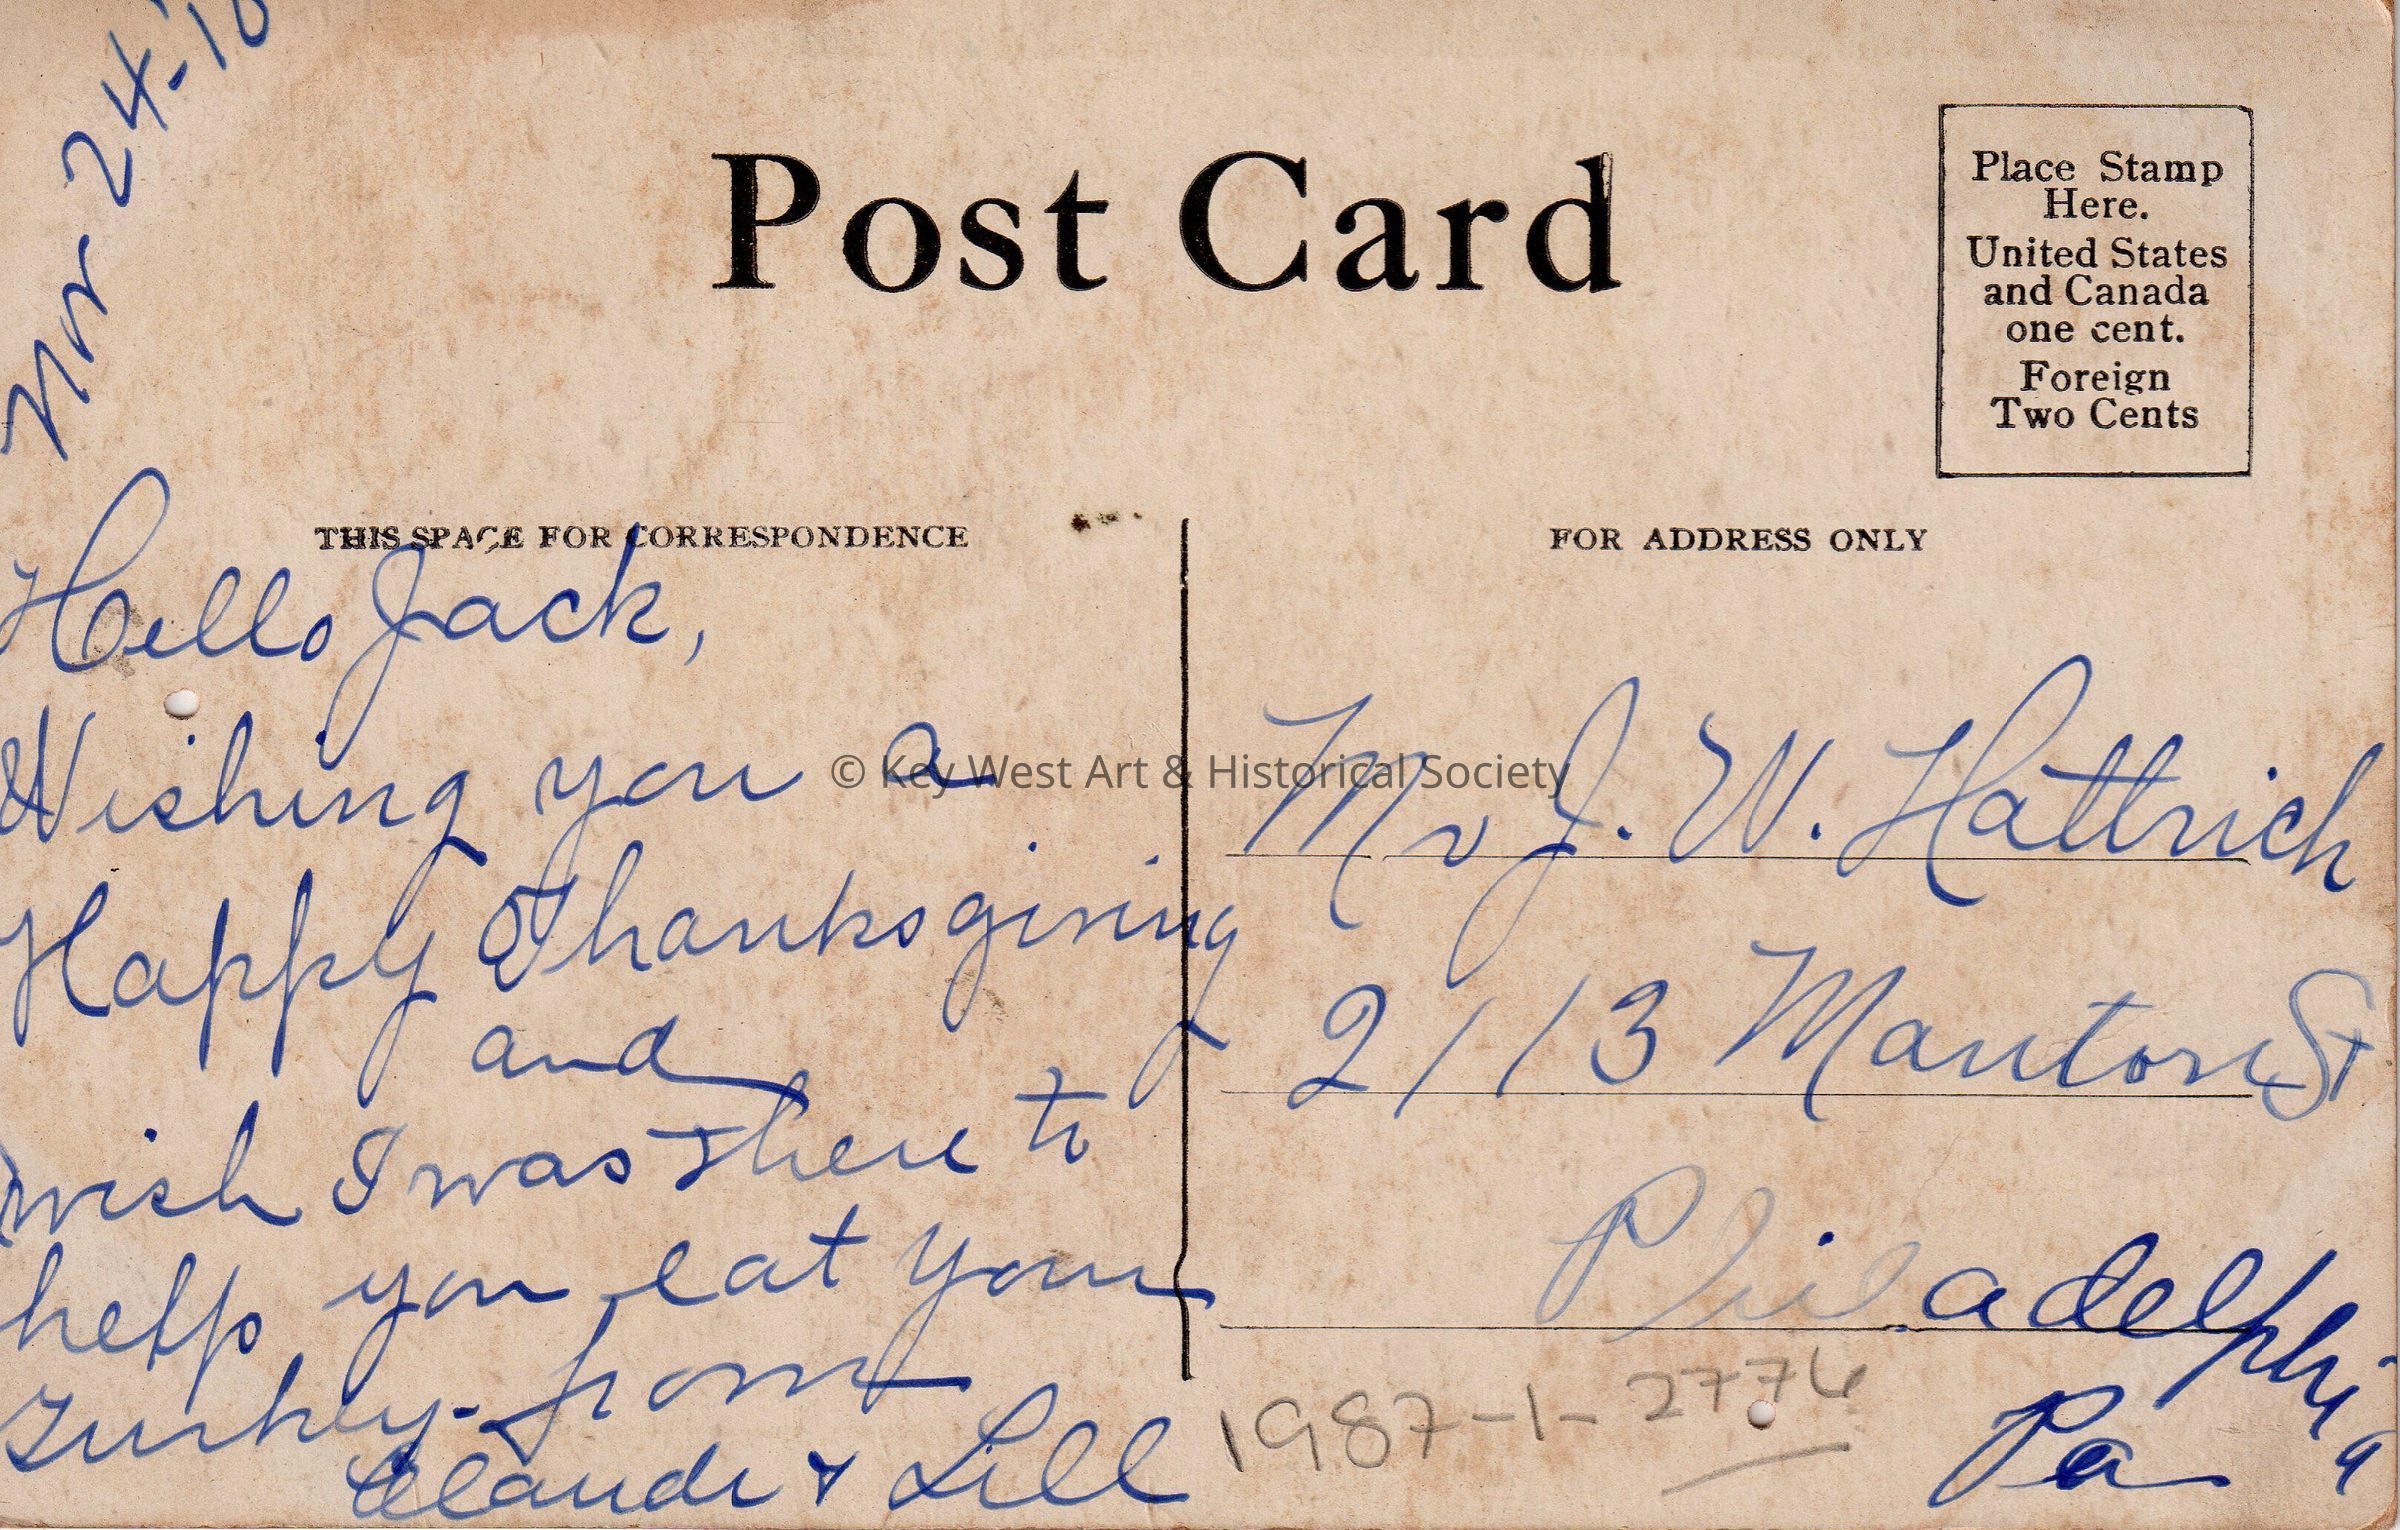 Nov 24-10
Post Card
Place Stamp
Here.
United States
and Canada
one cent.
Foreign
Two Cents
THIS SPACE FOR CORRESPONDENCE
Hello Jack,
Wishing you a
Happy Thanksgiving
and
wish I was there to
help you eat your
Turkey. from
Claude & Lill
FOR ADDRESS ONLY
Mr J. W. Hattrich
2113 Manton St
Philadelphia
Pa
1987-1-2776
© Key West Art & Historical Society